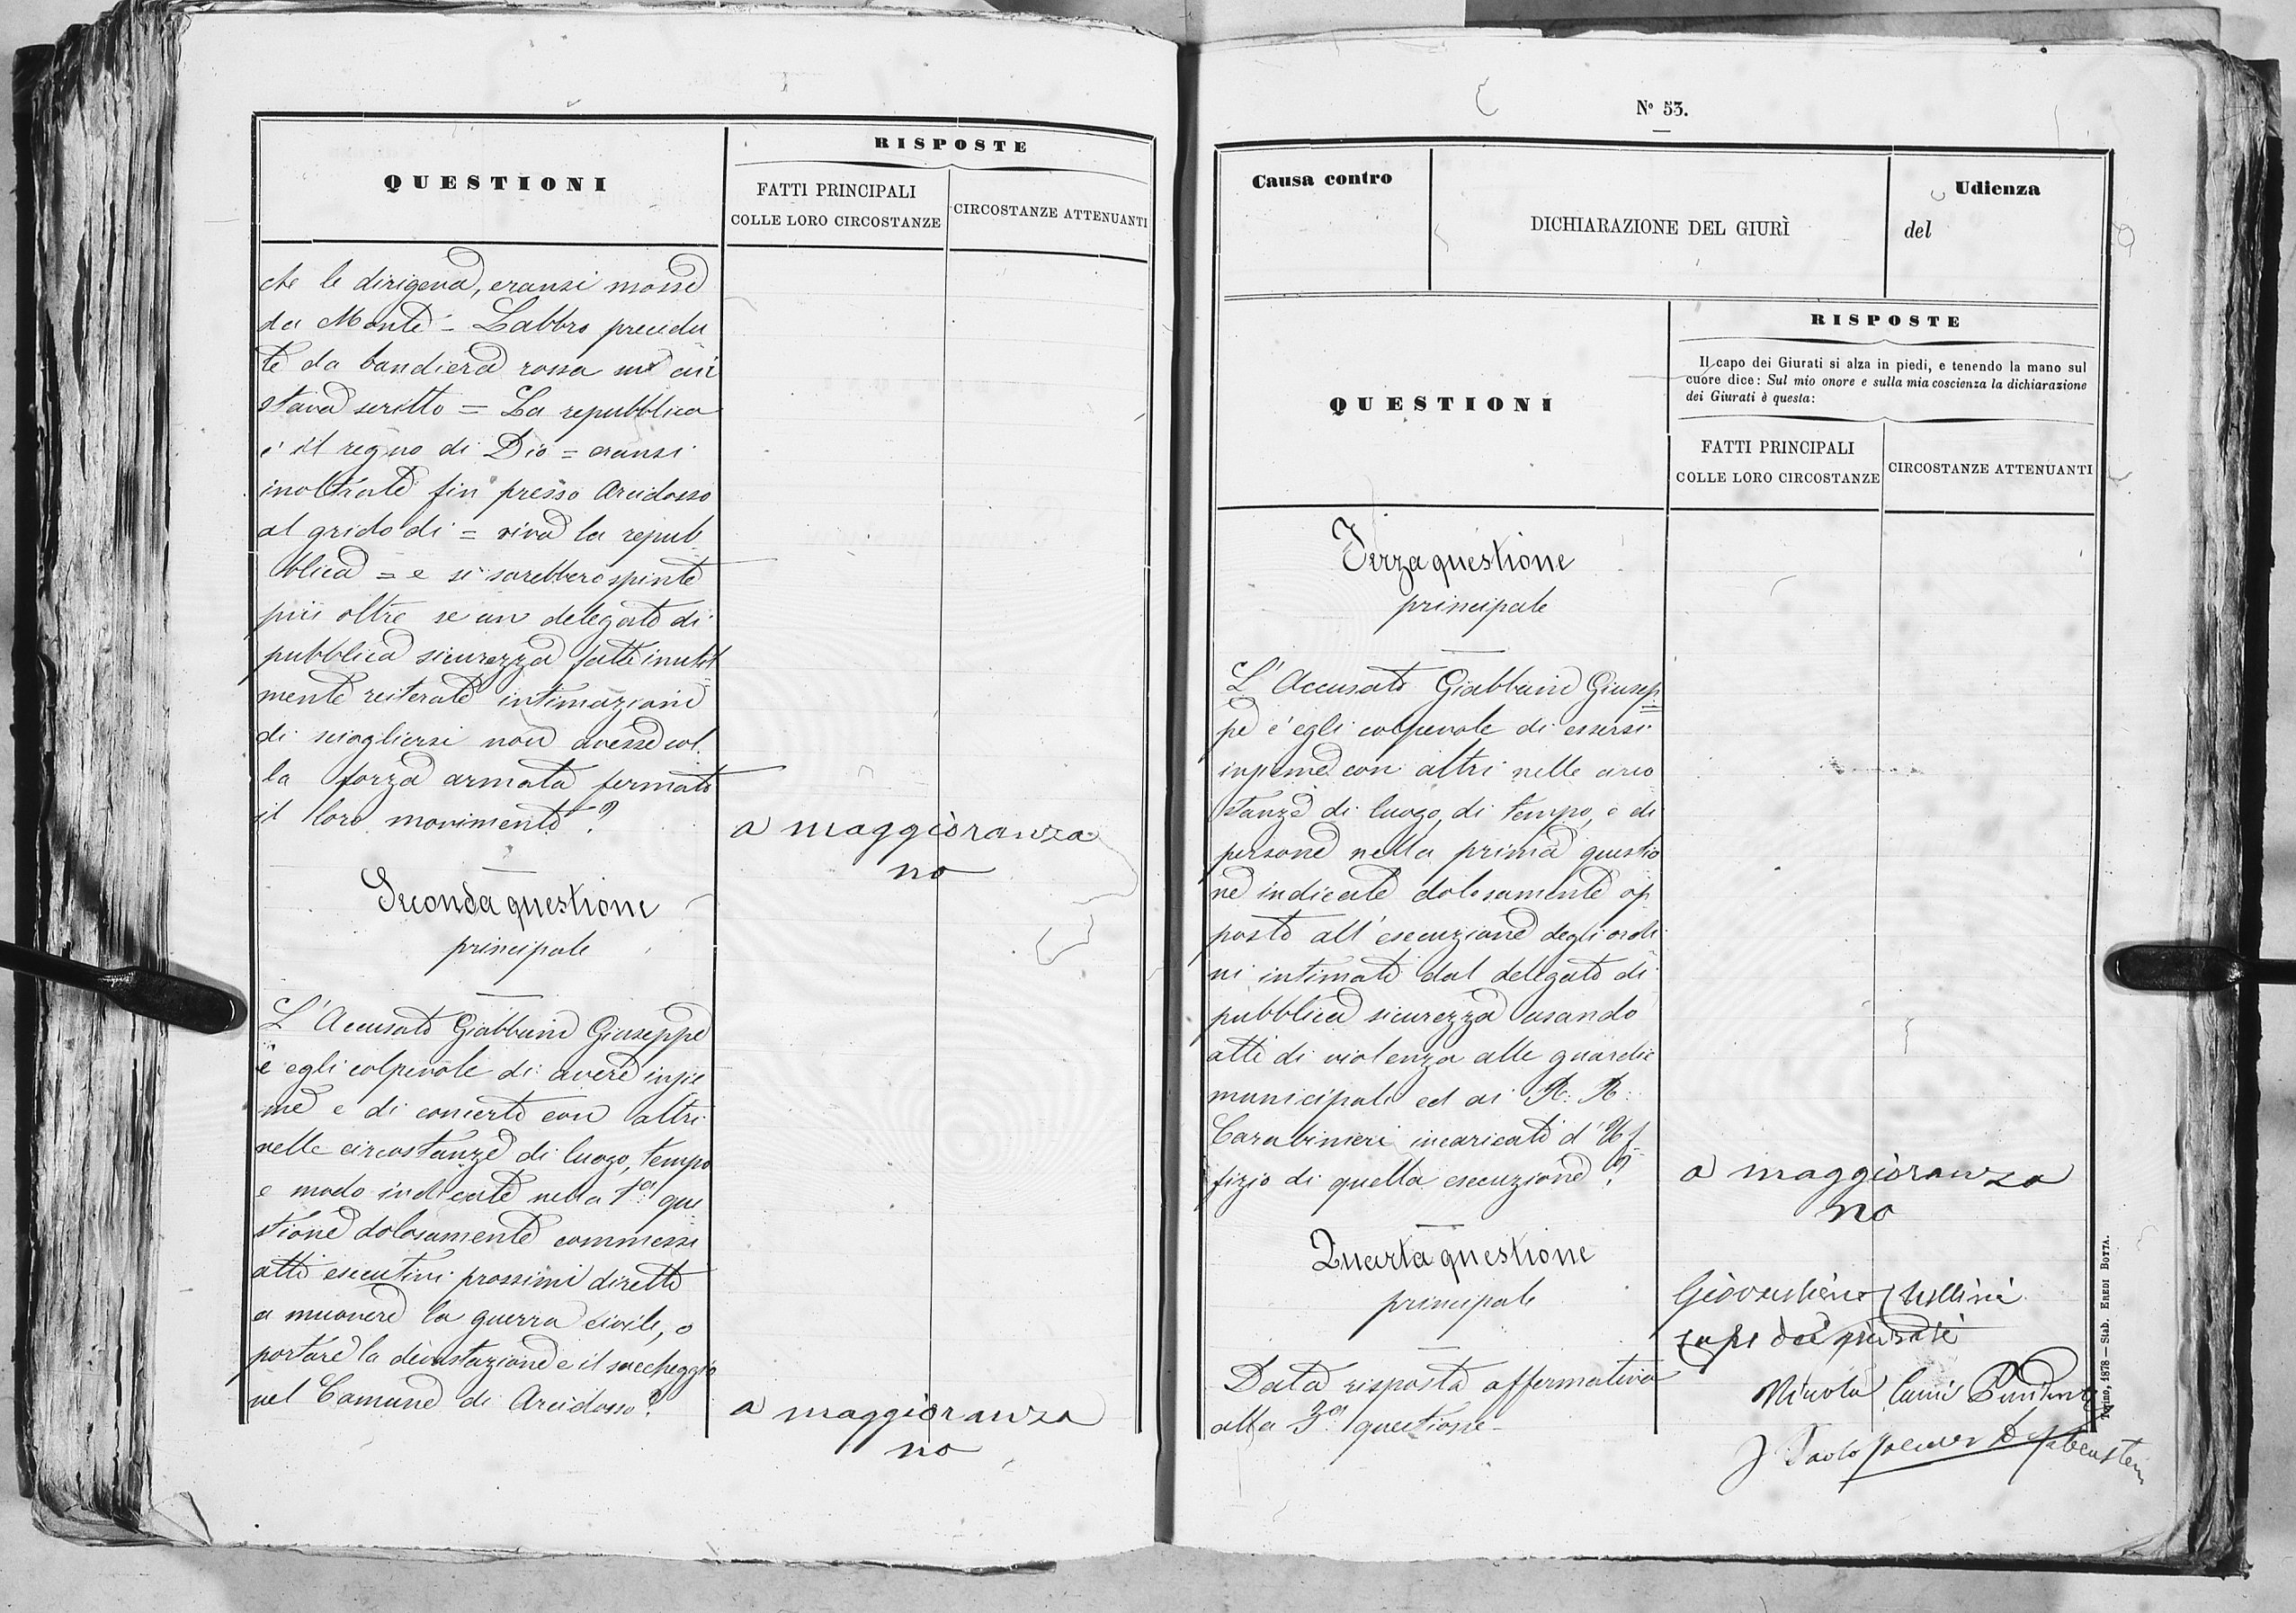 QUESTIONI
RISPOSTE
FATTI PRINCIPALI
COLLE LORO CIRCOSTANZE
CIRCOSTANZE ATTENUANTI
che le dirigeva, eransi mosse
da Monte-Labbro precedu
te da bandiera rossa su cui
stava scritto = La repubblica
è il regno di Dio = eransi
inoltrate fin presso Arcidosso
al grido di = viva la repub
blica = e si sarebbero spinte
più oltre se un delegato di
pubblica sicurezza fatte inutil
mente reiterate intimazioni
di sciogliersi non avesse col
la forza armata fermato
il loro movimento?
a maggioranza
no
Seconda questione
principale
L'Accusato Giabbani Giuseppe
è egli colpevole di avere insie
me e di concerto con altri
nelle circostanze di luogo, tempo
e modo indicate nella 1ª que
stione dolosamente commessi
atti esecutivi prossimi diretti
a muovere la guerra civile, o
portare la devastazione e il saccheggio
nel Comune di Arcidosso?
a maggioranza
no
Nº 53.
Causa contro
DICHIARAZIONE DEL GIURÌ
Udienza
del
QUESTIONI
RISPOSTE
Il capo dei Giurati si alza in piedi, e tenendo la mano sul
cuore dice: Sul mio onore e sulla mia coscienza la dichiarazione
dei Giurati è questa:
FATTI PRINCIPALI
COLLE LORO CIRCOSTANZE
CIRCOSTANZE ATTENUANTI
Terza questione
principale
L'Accusato Giabbani Giusep
pe è egli colpevole di essersi
insieme con altri nelle circo
stanze di luogo, di tempo, e di
persone nella prima questio
ne indicate dolosamente op
posto all'esecuzione degli ordi
ni intimati dal delegato di
pubblica sicurezza usando
atti di violenza alle guardie
municipali ed ai R: R:
Carabinieri incaricati d'Uf
fizio di quella esecuzione?
a maggioranza
no
Quarta questione
principale
Data risposta affermativa
alla 3ª questione-
capo dei giurati
Paolo
Torino, 1878 — Stab. EREDI BOTTA.